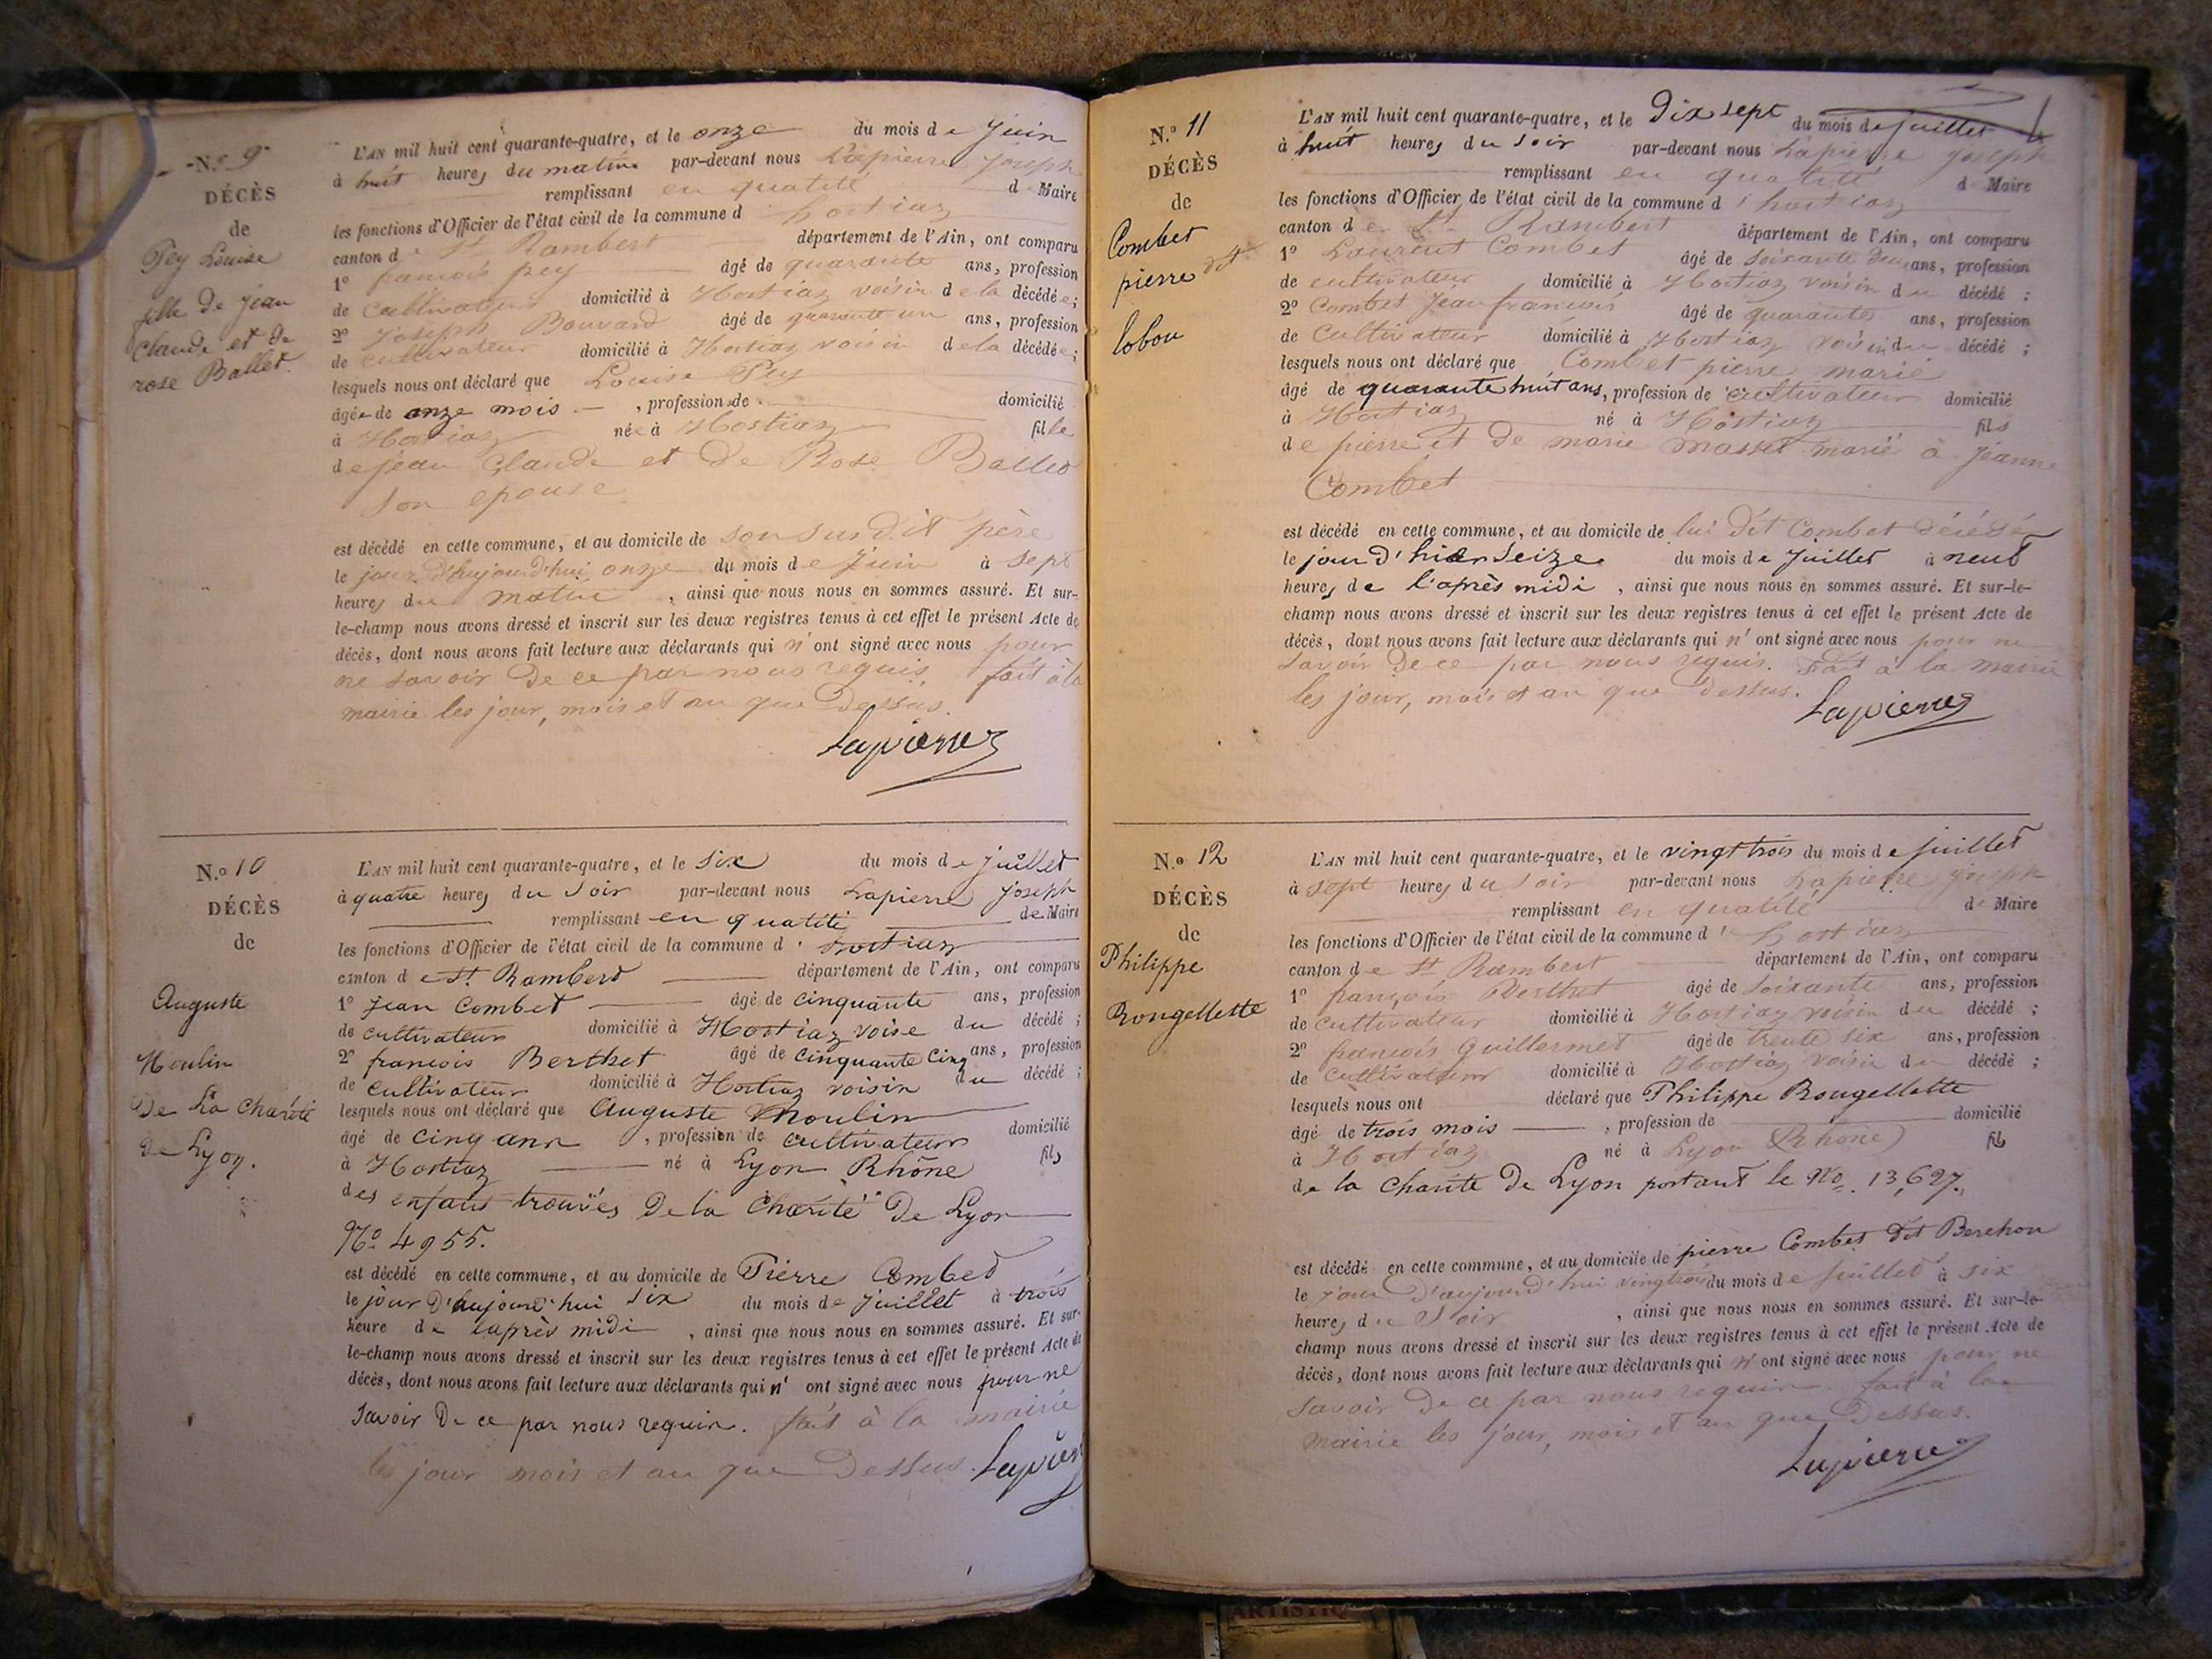 N.o 9
DÉCÈS
de
Pey Louise
fille de jean
Claude et de
rose Ballet.
L'AN mil huit cent quarante-quatre, et le onze du mois de Juin
à huit heures du matin par-devant nous Lapierre Joseph
remplissant en qualité de Maire
les fonctions d'Officier de l'état civil de la commune d'hostiaz
canton de St Rambert département de l'Ain, ont comparu
1o françois pey âgé de quarante ans, profession
de cultivateur domicilié à Hostiaz voisin de la décédée;
2o Joseph Bouvard âgé de quarante un ans, profession
de cultivateur domicilié à Hostiaz voisin de la décédée;
lesquels nous ont déclaré que Louise Pey
âgée de onze mois, profession de domicilié
à Hostiaz née à Hostiaz fille
de jean Claude et de Rose Ballet
son epouse
est décédé en cette commune, et au domicile de son susdit père
le jour d'aujourd'hui onze du mois de Juin à sept
heures du matin, ainsi que nous nous en sommes assuré. Et sur-
le-champ nous avons dressé et inscrit sur les deux registres tenus à cet effet le présent Acte de
décès, dont nous avons fait lecture aux déclarants qui n'ont signé avec nous pour
ne savoir de ce par nous requis. fait à la
mairie les jour, mois et an que dessus.
Lapierre
N.o 10
DÉCÈS
de
Auguste
Moulin
De La Charité
De Lyon.
L'AN mil huit cent quarante-quatre, et le six du mois de juillet
à quatre heures du soir par-devant nous Lapierre Joseph
remplissant en qualité de Maire
les fonctions d'Officier de l'état civil de la commune d'hostiaz
canton de St Rambert département de l'Ain, ont comparu
1o Jean Combet âgé de cinquante ans, profession
de cultivateur domicilié à Hostiaz voise du décédé;
2o francois Berthet âgé de cinquante cinq ans, profession
de cultivateur domicilié à Hostiaz voisin du décédé;
lesquels nous ont déclaré que Auguste Moulin
âgé de cinq ans, profession de cultivateur domicilié
à Hostiaz né à Lyon Rhône fils
des enfants trouvés De la Charité De Lyon
No 4955.
est décédé en cette commune, et au domicile de Pierre Combet
le jour d'aujourd'hui six du mois de Juillet à trois
heure de laprès midi, ainsi que nous nous en sommes assuré. Et sur-
le-champ nous avons dressé et inscrit sur les deux registres tenus à cet effet le présent Acte de
décès, dont nous avons fait lecture aux déclarants qui n'ont signé avec nous pour ne
savoir De ce par nous requis. fait à la mairie
les jour mois et an que Dessus. Lapierre
N.o 11
DÉCÈS
de
Combet
pierre dit
lobou
L'AN mil huit cent quarante-quatre, et le Dix sept du mois de juillet
à huit heures du soir par-devant nous Lapierre Joseph
remplissant en qualité de Maire
les fonctions d'Officier de l'état civil de la commune d'hostiaz
canton de St Rambert département de l'Ain, ont comparu
1o Laurent Combet âgé de soixante deux ans, profession
de cultivateur domicilié à Hostiaz voisin du décédé;
2o Combet Jean françois âgé de quarante ans, profession
de Cultivateur domicilié à Hostiaz voisin du décédé;
lesquels nous ont déclaré que Combet pierre marie
âgé de quarante huit ans, profession de cultivateur domicilié
à Hostiaz né à Hostiaz fils
de pierre et de marie Masset marié à Jeanne
Combet
est décédé en cette commune, et au domicile de lui dit Combet décédé
le jour d'hier seize du mois de Juillet à neuf
heures de l'après midi, ainsi que nous nous en sommes assuré. Et sur-le-
champ nous avons dressé et inscrit sur les deux registres tenus à cet effet le présent Acte de
décès, dont nous avons fait lecture aux déclarants qui n'ont signé avec nous pour ne
savoir De ce par nous requis. Fait à la mairie
les jour, mois et an que Dessus. Lapierre
N.o 12
DÉCÈS
de
Philippe
Rongellette
L'AN mil huit cent quarante-quatre, et le vingt trois du mois de juillet
à sept heures du soir par-devant nous Lapierre Joseph
remplissant en qualité de Maire
les fonctions d'Officier de l'état civil de la commune d'hostiaz
canton de St Rambert département de l'Ain, ont comparu
1o françois Berthet âgé de soixante ans, profession
de cultivateur domicilié à Hostiaz voisin du décédé;
2o francois Guillermet âgé de trente six ans, profession
de cultivateur domicilié à Hostiaz voisin du décédé;
lesquels nous ont déclaré que Philippe Rongellette
âgé de trois mois, profession de domicilié
à Hostiaz né à Lyon (Rhône) fils
de la Charité De Lyon portant le No. 13,627.
est décédé en cette commune, et au domicile de pierre Combet dit Berchou
le jour d'aujourd'hui vingt trois du mois de juillet à six
heures du soir, ainsi que nous nous en sommes assuré. Et sur-le-
champ nous avons dressé et inscrit sur les deux registres tenus à cet effet le présent Acte de
décès, dont nous avons fait lecture aux déclarants qui n'ont signé avec nous pour ne
savoir De ce par nous requis. fait à la
mairie les jour, mois et an que Dessus.
Lapierre
ARTISTIQ